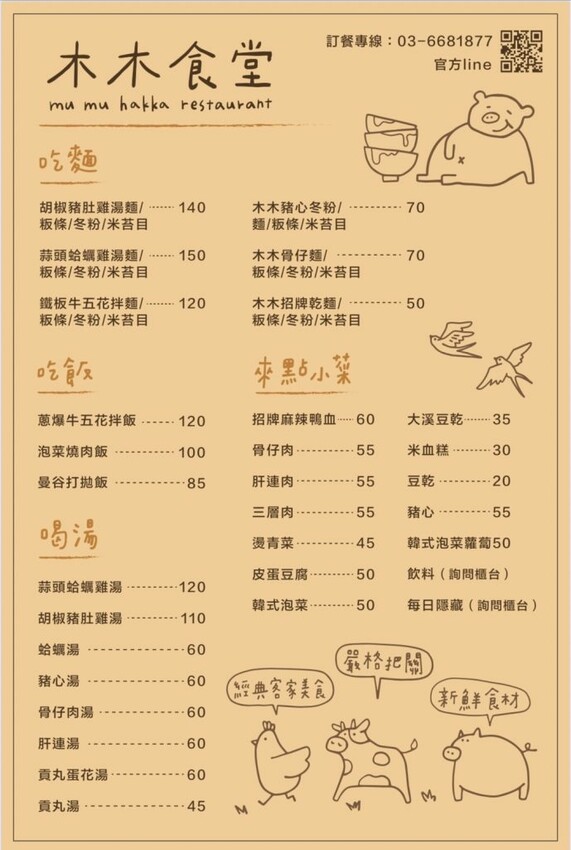 木木食堂
mu mu hakka restaurant
訂餐專線：03-6681877
官方line
吃麵
胡椒豬肚雞湯麵/ 140
粄條/冬粉/米苔目
蒜頭蛤蠣雞湯麵/ 150
粄條/冬粉/米苔目
鐵板牛五花拌麵/ 120
粄條/冬粉/米苔目
木木豬心冬粉/ 70
麵/粄條/米苔目
木木骨仔麵/ 70
粄條/冬粉/米苔目
木木招牌乾麵/ 50
粄條/冬粉/米苔目
吃飯
蔥爆牛五花拌飯 120
泡菜燒肉飯 100
曼谷打拋飯 85
喝湯
蒜頭蛤蠣雞湯 120
胡椒豬肚雞湯 110
蛤蠣湯 60
豬心湯 60
骨仔肉湯 60
肝連湯 60
貢丸蛋花湯 60
貢丸湯 45
來點小菜
招牌麻辣鴨血 60
骨仔肉 55
肝連肉 55
三層肉 55
燙青菜 45
皮蛋豆腐 50
韓式泡菜 50
大溪豆乾 35
米血糕 30
豆乾 20
豬心 55
韓式泡菜蘿蔔50
飲料（詢問櫃台）
每日隱藏（詢問櫃台）
經典客家美食
嚴格把關
新鮮食材